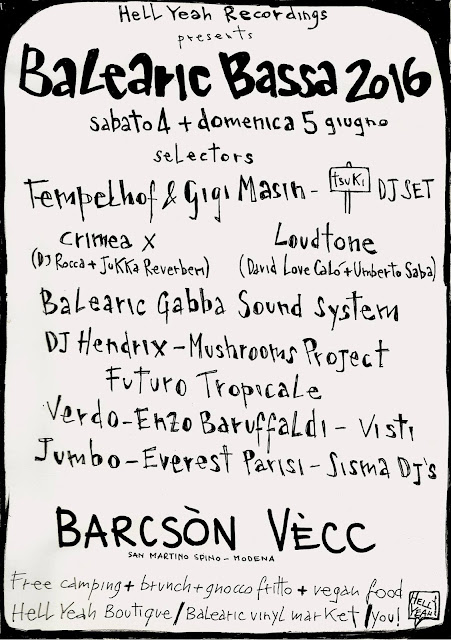 Hell Yeah Recordings
presents
Balearic Bassa 2016
sabato 4 + domenica 5 giugno
selectors
Tempelhof & Gigi Masin - tsuki DJ SET
crimea x
(DJ Rocca + Jukka Reverberi)
Loudtone
(David Love Calò + Umberto Saba)
Balearic Gabba Sound System
DJ Hendrix - Mushrooms Project
Futuro Tropicale
Verdo - Enzo Baruffaldi - Visti
Jumbo - Everest Parisi - Sisma DJ's
BARCSÒN VÈCC
SAN MARTINO SPINO - MODENA
Free camping + brunch + gnocco fritto + vegan food
Hell Yeah Boutique / Balearic vinyl market / you!
HELL YEAH!